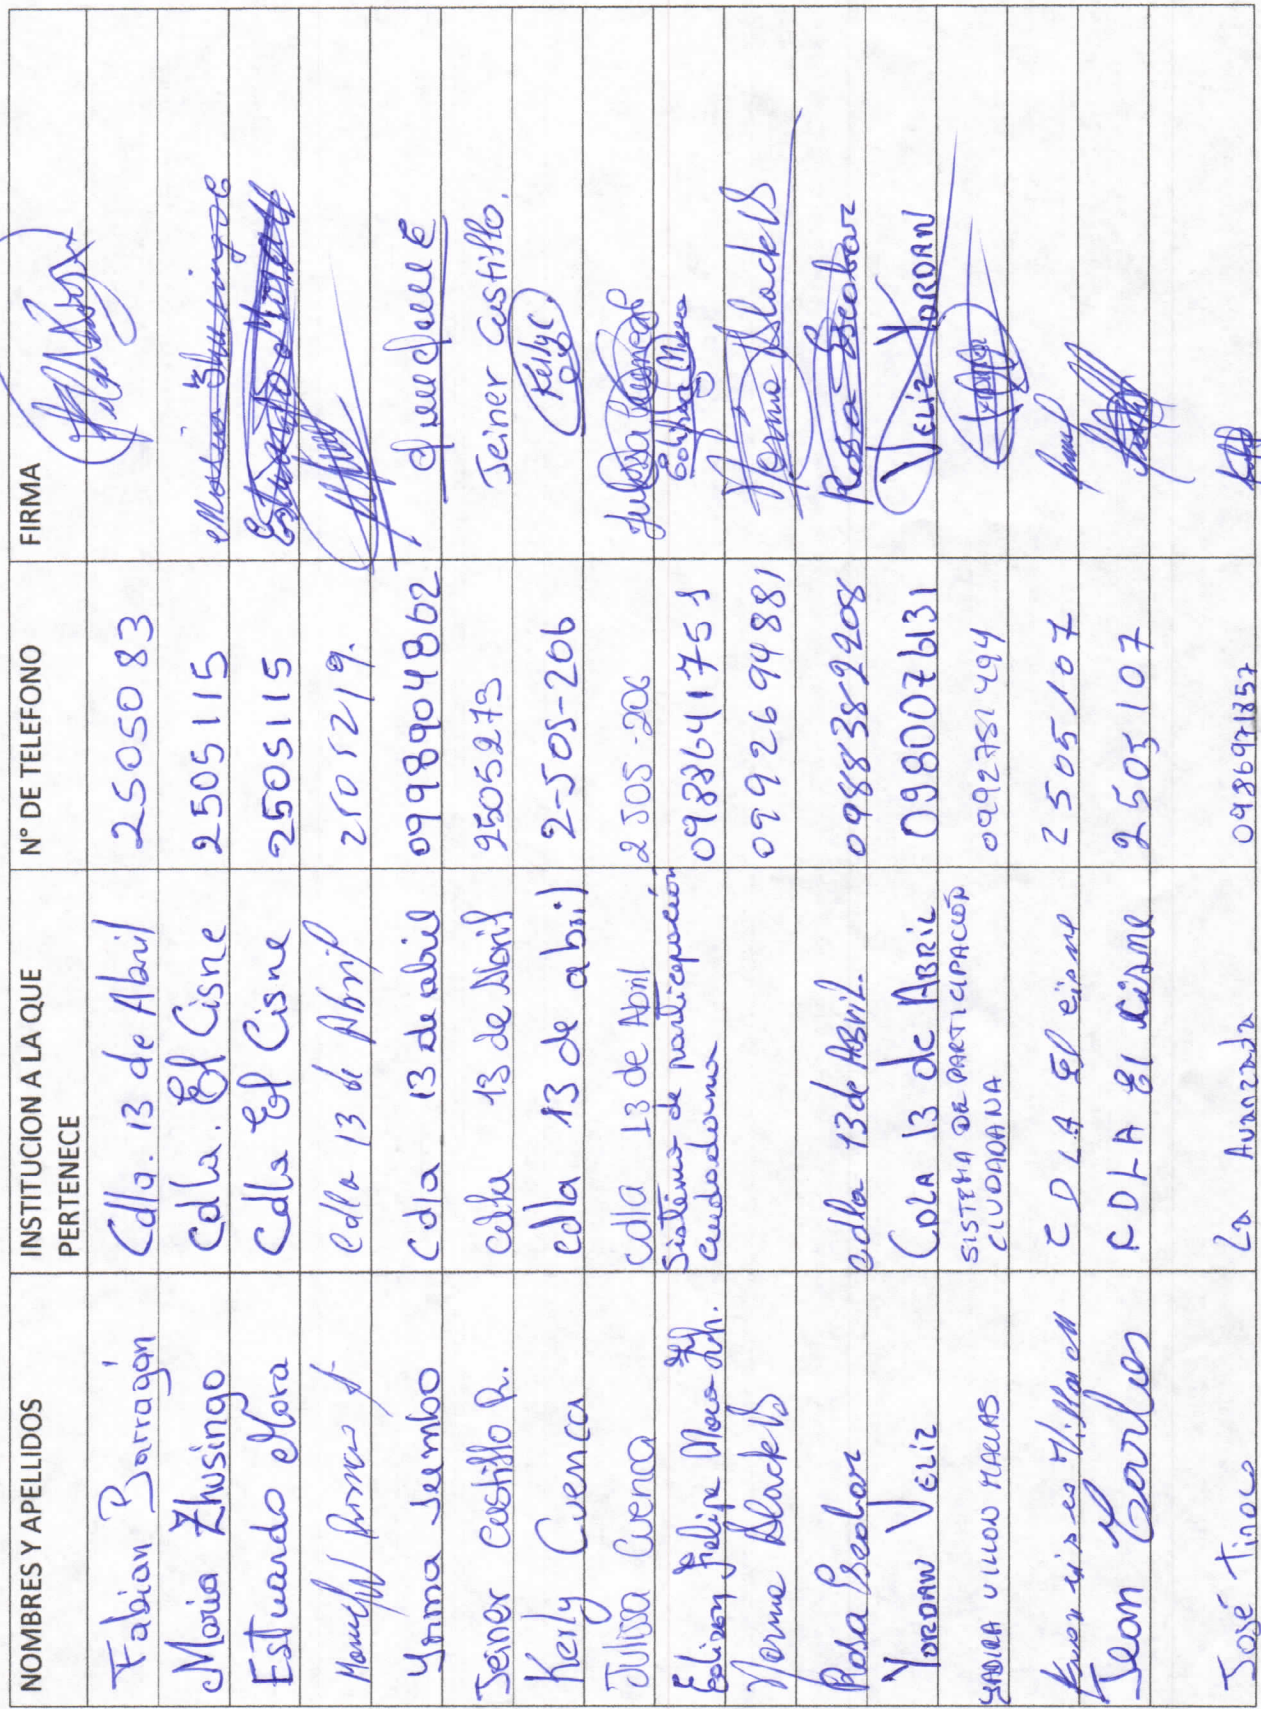 NOMBRES Y APELLIDOS INSTITUCION A LA QUE PERTENECE N° DE TELEFONO FIRMA
Fabian Barragán Cdla. 13 de Abril 2505083
Maria Zhusingo Cdla. El Cisne 2505115 Maria Zhusingo
Estuardo Mora Cdla El Cisne 2505115 Estuardo Mora
Manuel Cdla 13 de Abril 2505219.
Cdla 13 de abriel 0998904862
Jeiner Castillo R. Cdla 13 de Abril 2505273 Jeiner Castillo.
Kerly Cuenca cdla 13 de abril 2-505-206 Kerly C.
Julissa Cuenca Cdla 13 de Abril 2505-206 Julissa Cuenca
Edison Felipe Mora Zh. Sistema de participación ciudadana 0988641751
Norma Blacks 0992694881 Norma Blacks
Rosa Escobar cdla 13 de Abril. 0988385 Rosa Escobar
YORDAN VELIZ CDLA 13 de ABRIL 0980076131 VELIZ YORDAN
SISTEMA DE PARTICIPACIÓN CIUDADANA
CDLA El Cisne 2505107
Jean CDLA El Cisne 2505107
José Tinoco La Avanzada